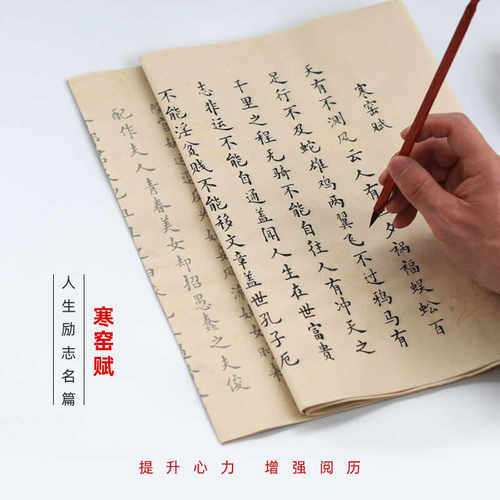 寒窑赋
天有不测风云人有夕祸福蜈蚣百
足行不及蛇雄鸡两翼飞不过鸦马有
千里之程无骑不能自往人有冲天之
志非运不能自通盖闻人生在世富贵
不能淫贫贱不能移文章盖世孔子厄
配作夫人青春美女却招愚蠢之夫俊
寒窑赋
人生励志名篇
提升心力 增强阅历